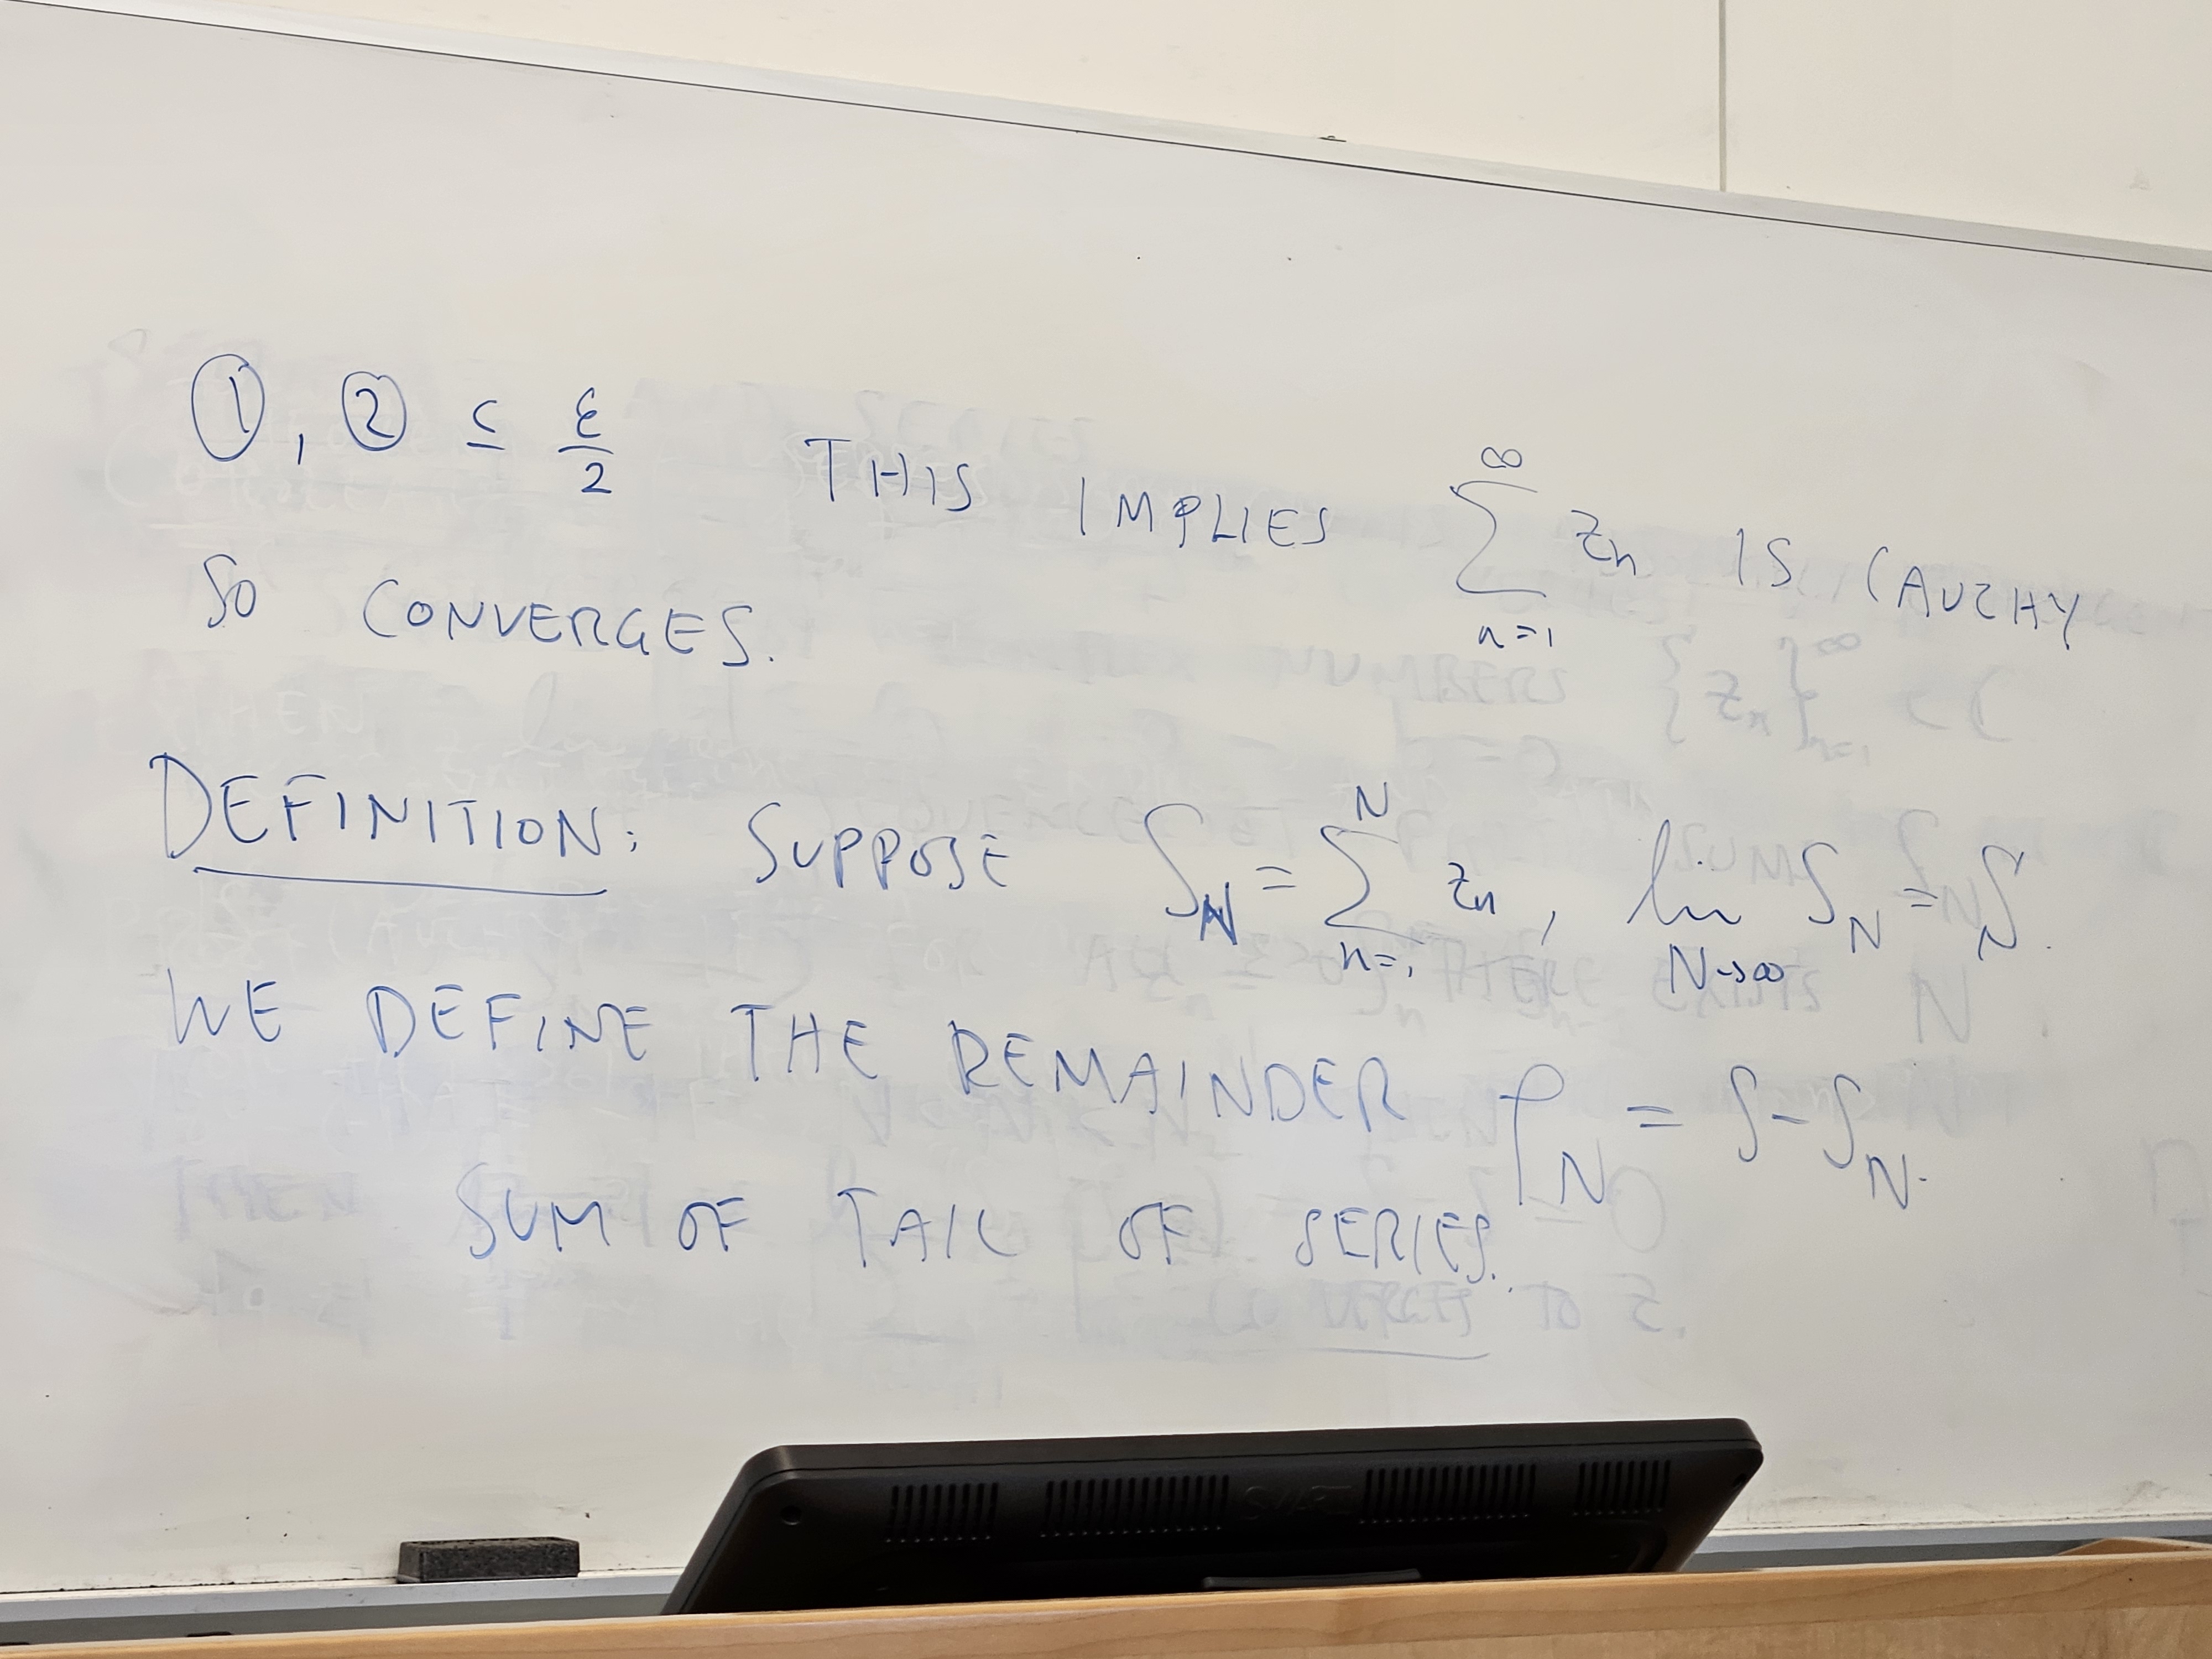 ①, ② ≤ ε/2 THIS IMPLIES ∑_{n=1}^{∞} z_n IS CAUCHY
SO CONVERGES.
DEFINITION: SUPPOSE S_N = ∑_{n=1}^{N} z_n, lim_{N→∞} S_N = S.
WE DEFINE THE REMAINDER ρ_N = S - S_N.
SUM OF TAIL OF SERIES.